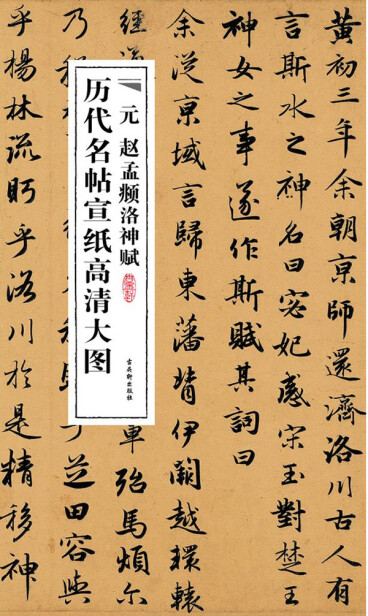 黄初三年余朝京師還濟洛川古人有
言斯水之神名曰宓妃感宋玉對楚王
神女之事遂作斯賦其詞曰
余從京域言歸東藩背伊闕越轘轅
元 赵孟𫖯洛神赋
历代名帖宣纸高清大图
古吴轩出版社
經
車殆馬煩尔
乃
芝田容與
乎楊林流眄乎洛川於是精移神